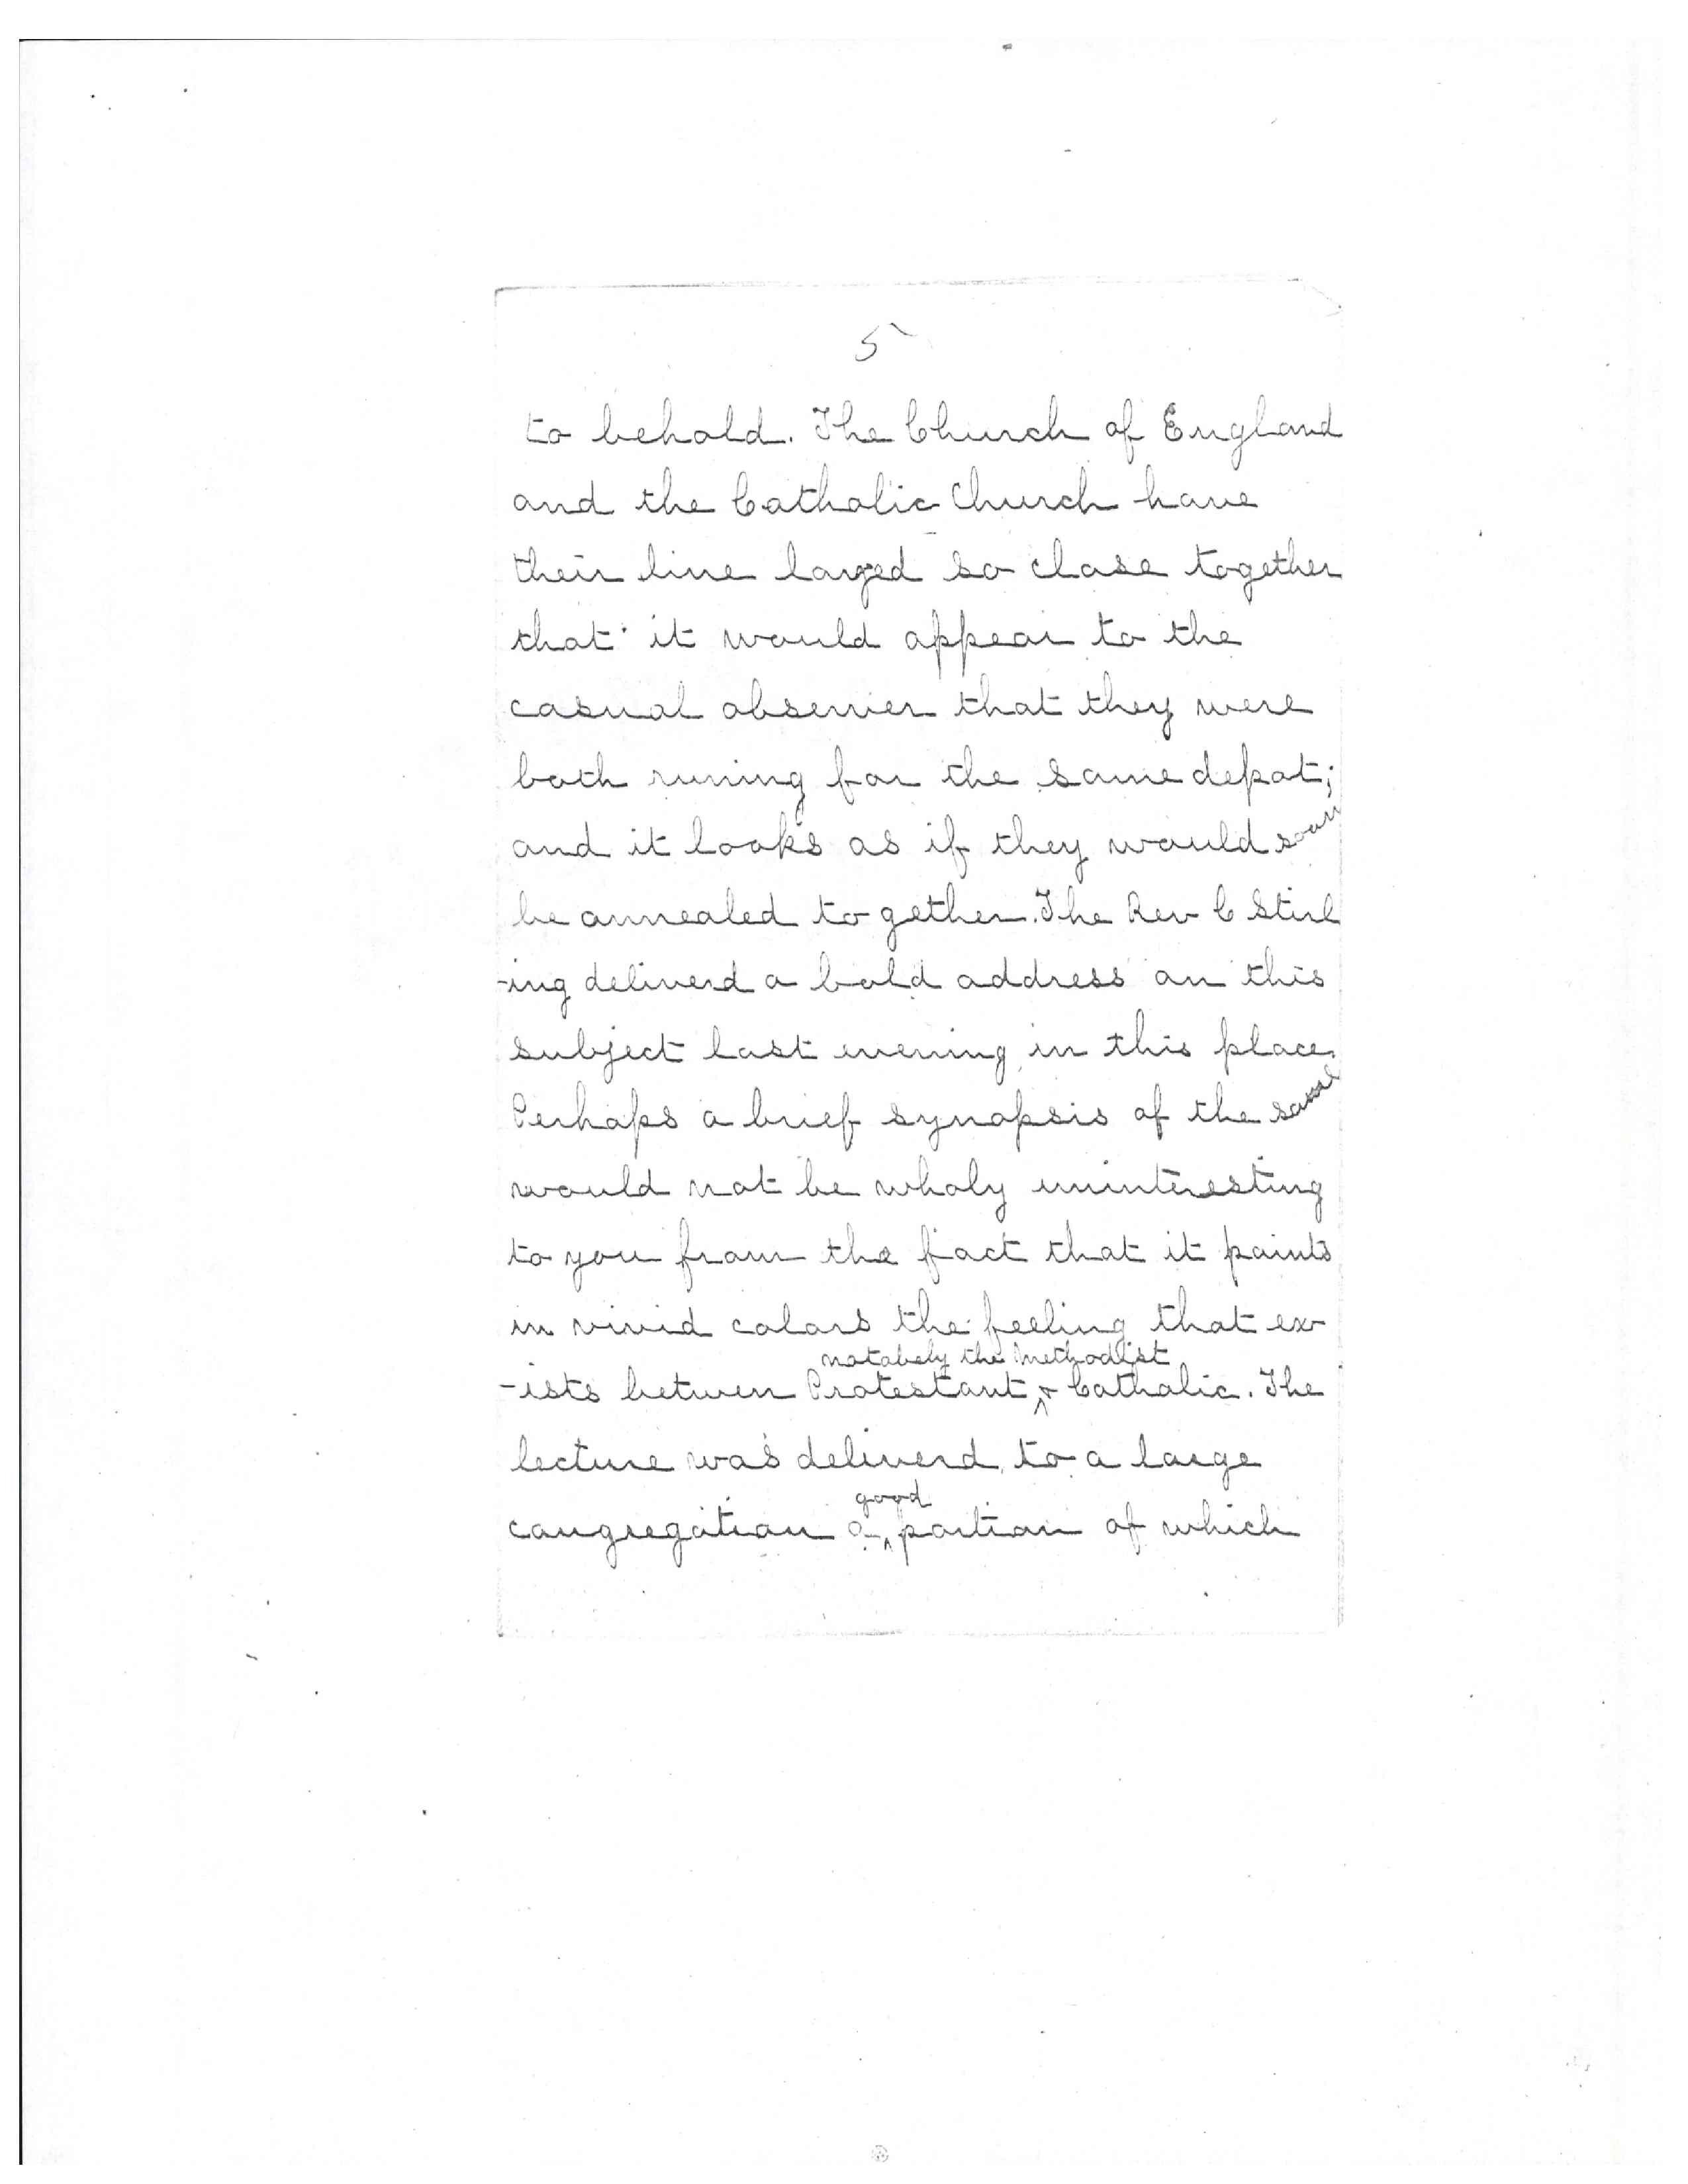 5
to behold. The Church of England
and the Catholic Church have
their line layed so close together
that it would appear to the
casual observer that they were
both runing for the same depot;
and it looks as if they would soon
be annealed to gether. The Rev C Stirl
-ing deliverd a bold address on this
subject last evening in this place.
Perhaps a brief synopsis of the same
would not be wholy uninteresting
to you from the fact that it paints
in vivid colors the feeling that ex-
notabely the Methodist
-ists betwen Protestant ^ & Catholic. The
lecture was deliverd to a large
good
congregation a ^ portion of which